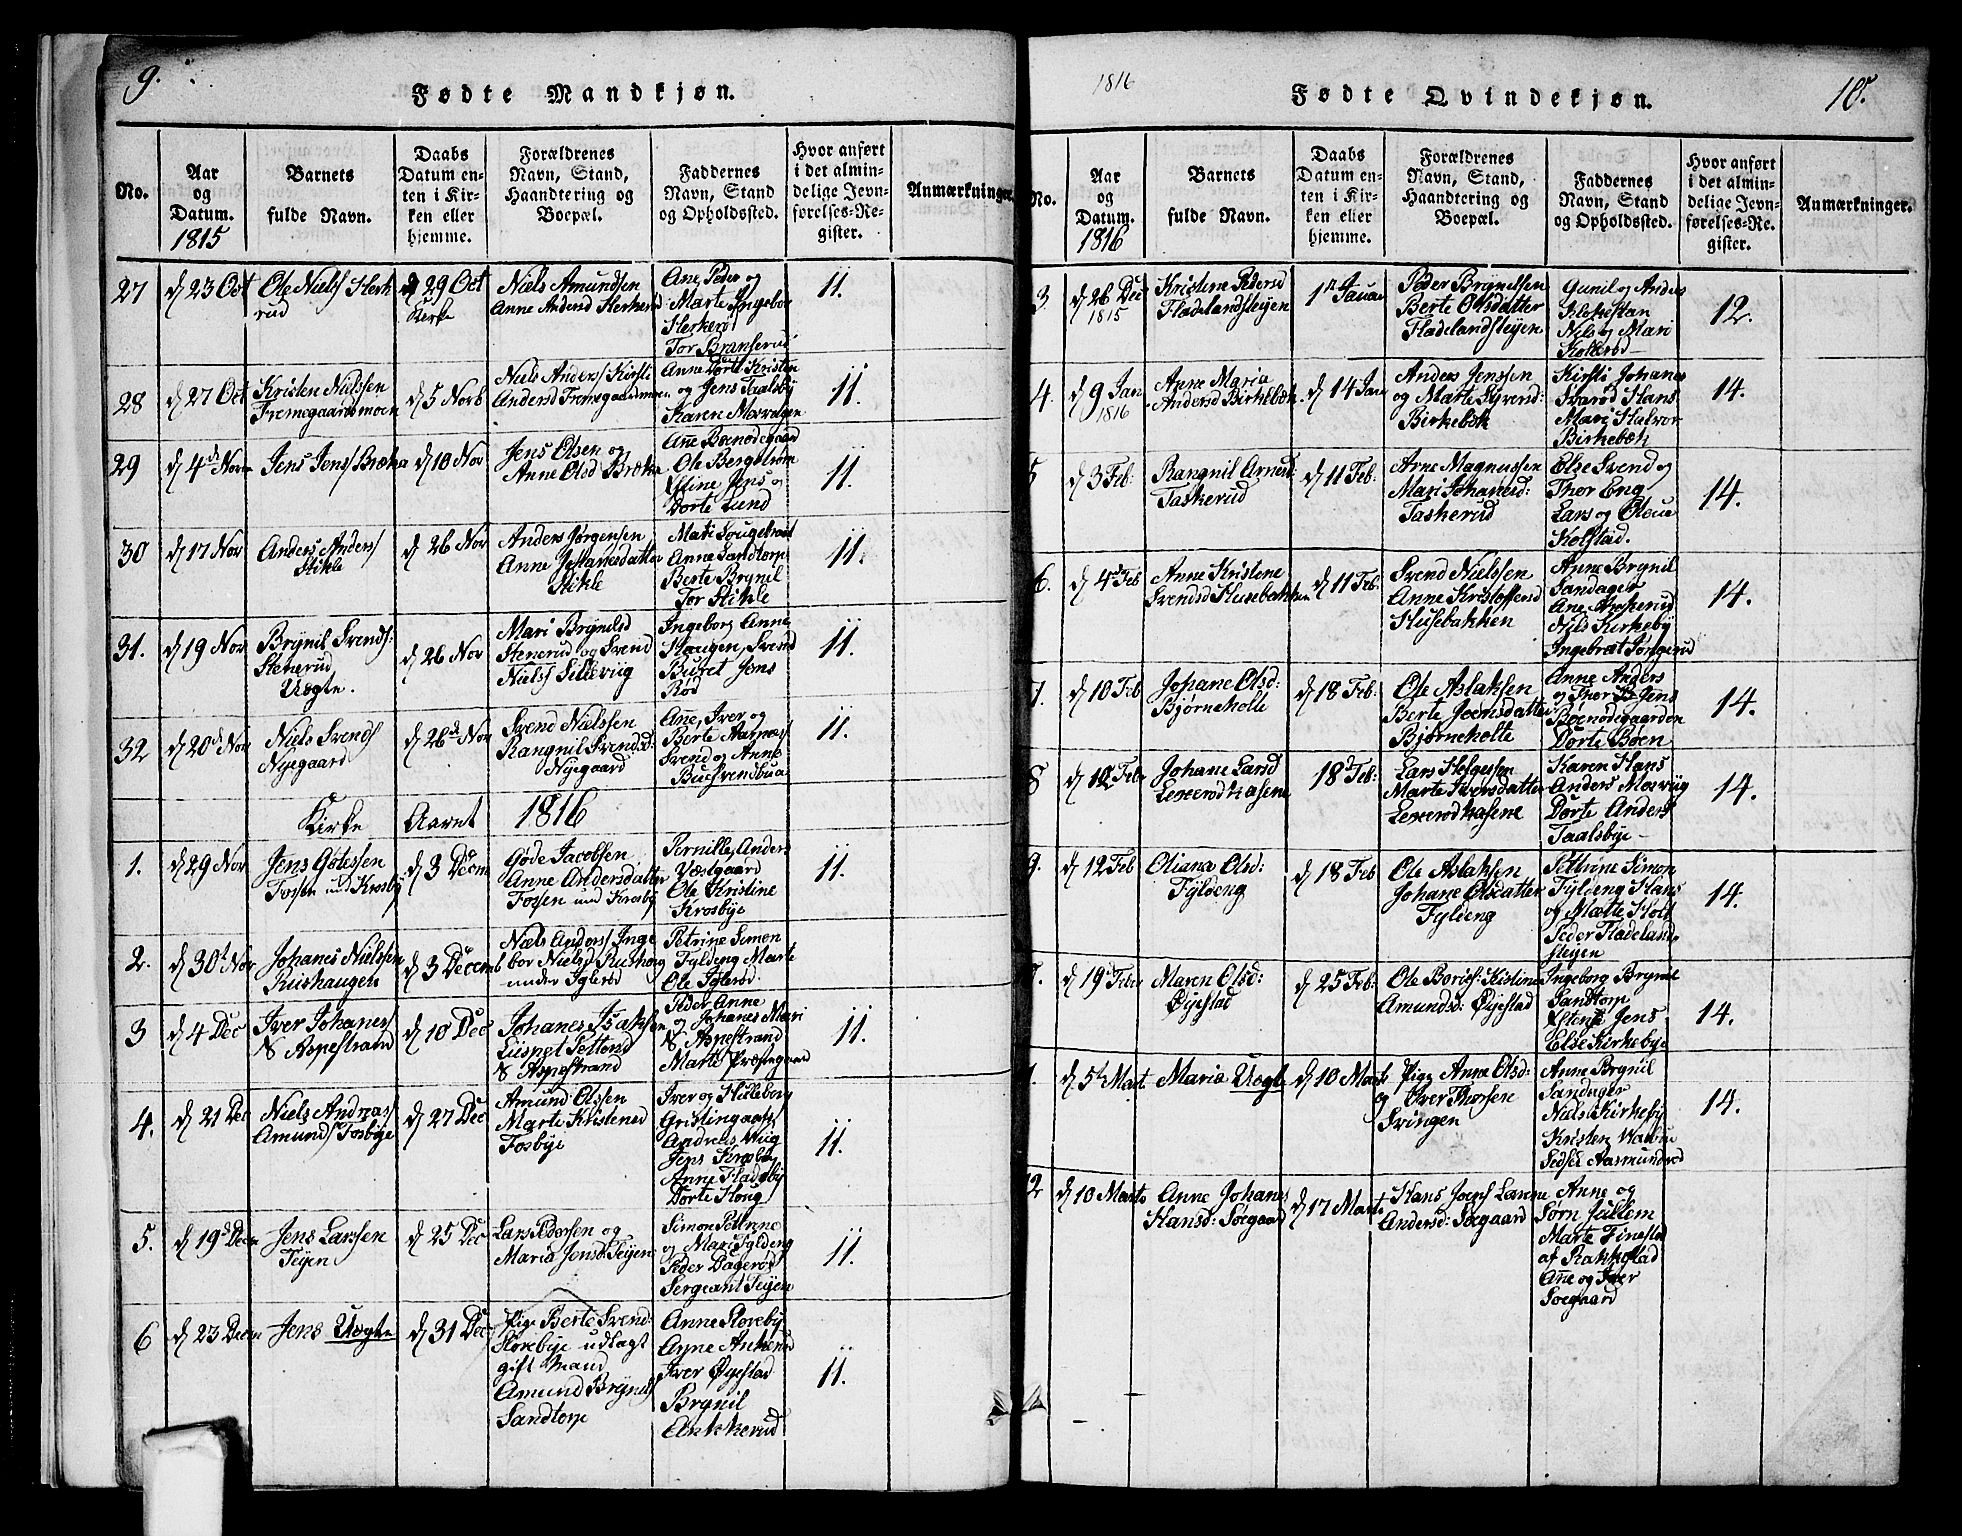 9.
Fødte Mandkjøn.
No.
Aar
og
Datum.
1815
Barnets
fulde Navn.
Daabs
Datum en-
ten i Kir-
ken eller
hjemme.
Forældrenes
Navn, Stand,
Haandtering og
Boepæl.
Faddernes
Navn, Stand
og Opholdssted.
Hvor anført
i det almin-
delige Jevn-
førelses-Re-
gister.
Anmærkninger.
27
d 23 Oct
Ole Niels Herk
rud
d 29 Oct
Kirke
Niels Amundsen
Anne Andersd Herkerud
Ane, Peder og
Marte Ingebor
Herkerø
Tor Brenserud
11.
28
d 27 Oct
Kristen Nielssen
Fremegaardsmoen
d 5 Norb
Niels Anders Kirsti
Andersd Fremegaardsmoen
Anne Dorte Kristen
og Jens Taalsby
Karen Morvagen
11.
29
d 4d Nov
Jens Jens Bræka
d 10 Nov
Jens Olsen og
Anne Olsd Bræka
Ane Boenødegaard
Ole Bergstrøm
Jens og
Dorte Lund
11.
30
d 17 Nov
Anders Anders
Stikle
d 26 Nov
Anders Jørgensen
Anne Johanesdatter
Stikle
Mari
Anne Sandtorp
Berte Brynil
Tor Stikle
11.
31.
d 19 Nov
Brynil Svends:
Stenerud
Uægte.
d 26 Nov
Mari Brynilsd
Stenerud og Svend
Niels Lillevug
Ingebor, Anne
Haugen, Svend
Buret Jens
Rød
11.
32
d 20d Nov
Niels Svends
Nyegaard
d 26d Nov
Svend Nielssen
Rangnil Svendsd:
Nyegaard
Ane, Iver og
Berte Aarnæs
Svend og Anne
Bucsvendsbua
11.
Kirke Aaret 1816
1.
d 29 Nov
Jens Gøtessen
Torsen und Krosby
d 3 Decem
Gøde Jacobsen
Anne Andersdatter
Torsen und Krosby
Pernille, Anders
Væstgaard
Ole Kristine
Krosbye
11.
2.
d 30t Nov
Johanes Nielssen
Ruishaugen
d 3 Decemb
Niels Anders Inge
bor Nielsd Ruishoug
under Iglerød
Petrine Simon
Fyldeng Marte
Ole Iglerød
11.
3
d 4 Dec
Iver Johanes
N Aspestrand
d 10 Dec
Johanes Isaksen
Lispet Pettersd
N Aspestrand
Peder Anne
og Johanes Mari
N Aspestrand
Marte Præstegaard
11.
4.
d 21 Dec
Niels Andreas
Amunds Fosbye
d 27 Dec
Amund Olssen
Marte Kristensd
Fosbye
Iver og Hilleborg
Gristingaard
Andreas Wiig
Jens Krosby
Anne Fladeby
Dorte Houg
11.
5.
d 19d Decm
Jens Larssen
Teyen
d 25 Dec
Lars Pederssen og
Maria Jensd: Teyen
Simon Petrine
og Mari Fyldeng
Peder Dagerød
Sergeant Teyen
11.
6
d 23 Decm
Jens Uægte
d 31 Dec
Pige Berte Svend
Florebye udlagt
gift Mand
Amund Bryniels
Sandtorp
Anne Florebye
Anne Ankerud
Iver Øyestad
Brynil
Ankkerud
11.
1816
Fødte Qvindekjøn.
10.
No.
Aar
og
Datum.
1816
Barnets
fulde Navn.
Daabs
Datum en-
ten i Kir-
ken eller
hjemme.
Forældrenes
Navn, Stand,
Haandtering og
Boepæl.
Faddernes
Navn, Stand
og Opholdssted.
Hvor anført
i det almin-
delige Jevn-
førelses-Re-
gister.
Anmærkninger.
3.
d 26 Dec
1815
Kristine Pedersd
Fladelandsleyen
1n Januar
Peder Brynildsen
Berte Olsdatter
Fladelandsleyen
Gunil og Anders
Klokestan
Niels og Mari
Kollerød
12.
4.
d 9 Jan
1816
Anne Maria
Andersd Birkebæk
d 14 Jan
Anders Jenssen
og Marte Syversd:
Birkebæk
Kirsti Johanes
Svarød Hans
Mari Halvor
Birkebæk
14.
5
d 3 Feb:
Rangnil Arnesd:
Taskerud
d 11 Feb:
Arne Magnussen
Mari Johanesd:
Taskerud
Else Svend og
Thor Eng
Lars og Oleua
Kolstad.
14.
6.
d 4d Feb
Anne Kristine
Svendsd Husebakken
d 11 Feb:
Svend Nielssen
Anne Kristoffersd
Husebakken
Anne Brynil
Sandager
Ane Askerud
Niels Kirkeby
Ingebræt Tongerud
14.
7.
d 10 Feb
Johane Olsd:
Bjørneholte
d 18 Feb:
Ole Aslaksen
Berte Joensdatter
Bjørneholte
Anne Anders
og Thor Jens
Boenødegaarden
Dorte Boen
14.
8
d 12 Febr
Johane Larsd
Lexerødkasene
18d Feb:
Lars Helgessen
Marte Iversdatter
Lexerødkasene
Karen Hans
Anders Morviig
Dorte Anders
Taalsbye
14.
9.
d 12 Feb
Oliana Olsd:
Fyldeng
d 18 Feb
Ole Aslaksen
Johane Olsdatter
Fyldeng
Pettrine Simon
Fyldeng Hans
og Mætte Holt
Peder Fladeland-
sleyen
14.
d 19d Feb
Maren Olsd:
Øyestad
d 25 Feb:
Ole Børies: Kristine
Amundsd: Øyestad
Ingeborg Brynil
Sandtorp
Jens
Else Kirkebye
14.
d 5t Mart
Maria Uægt
d 10 Marts
Pige Anne Olsd:
og Iver Thorsen
Svingen
Anne Brynil
Sandager
Niels Kirkeby
Kristen
Aasmundrød
14.
12
d 10 Marts
Anne Johanes
Hansd: Soegaard
d 17 Marts
Hans Joens Larene
Andersd: Soegaard
Anne og
Sørn Jullem
Marte Finestad
af Rakkestad
Ane og Iver
Soegaard